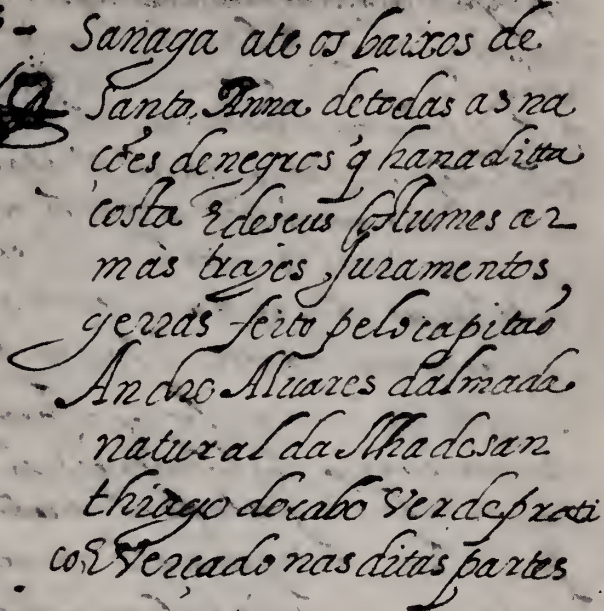 Sanaga ate os baixos de
Santa Anna de todas as na
cões de negros q̃ ha na ditta
costa E de seus costumes ar
mas trajes Juramentos,
gerras feito pelo capitão
Andre Alvares dalmada
natural da Ilha de san
thiago do cabo Verde prati
co E Verçado nas ditas partes